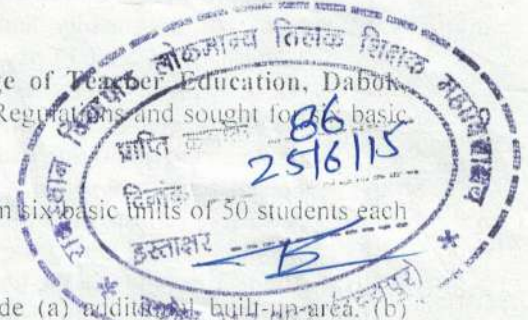 ge of Teacher Education, Dabok
Regulations and sought for six basic
n six basic units of 50 students each
de (a) additional built-up-area, (b)
राजस्थान विद्यापीठ लोकमान्य तिलक शिक्षक महाविद्यालय
प्राप्ति क्रमांक 86
दिनांक 25/6/15
हस्ताक्षर